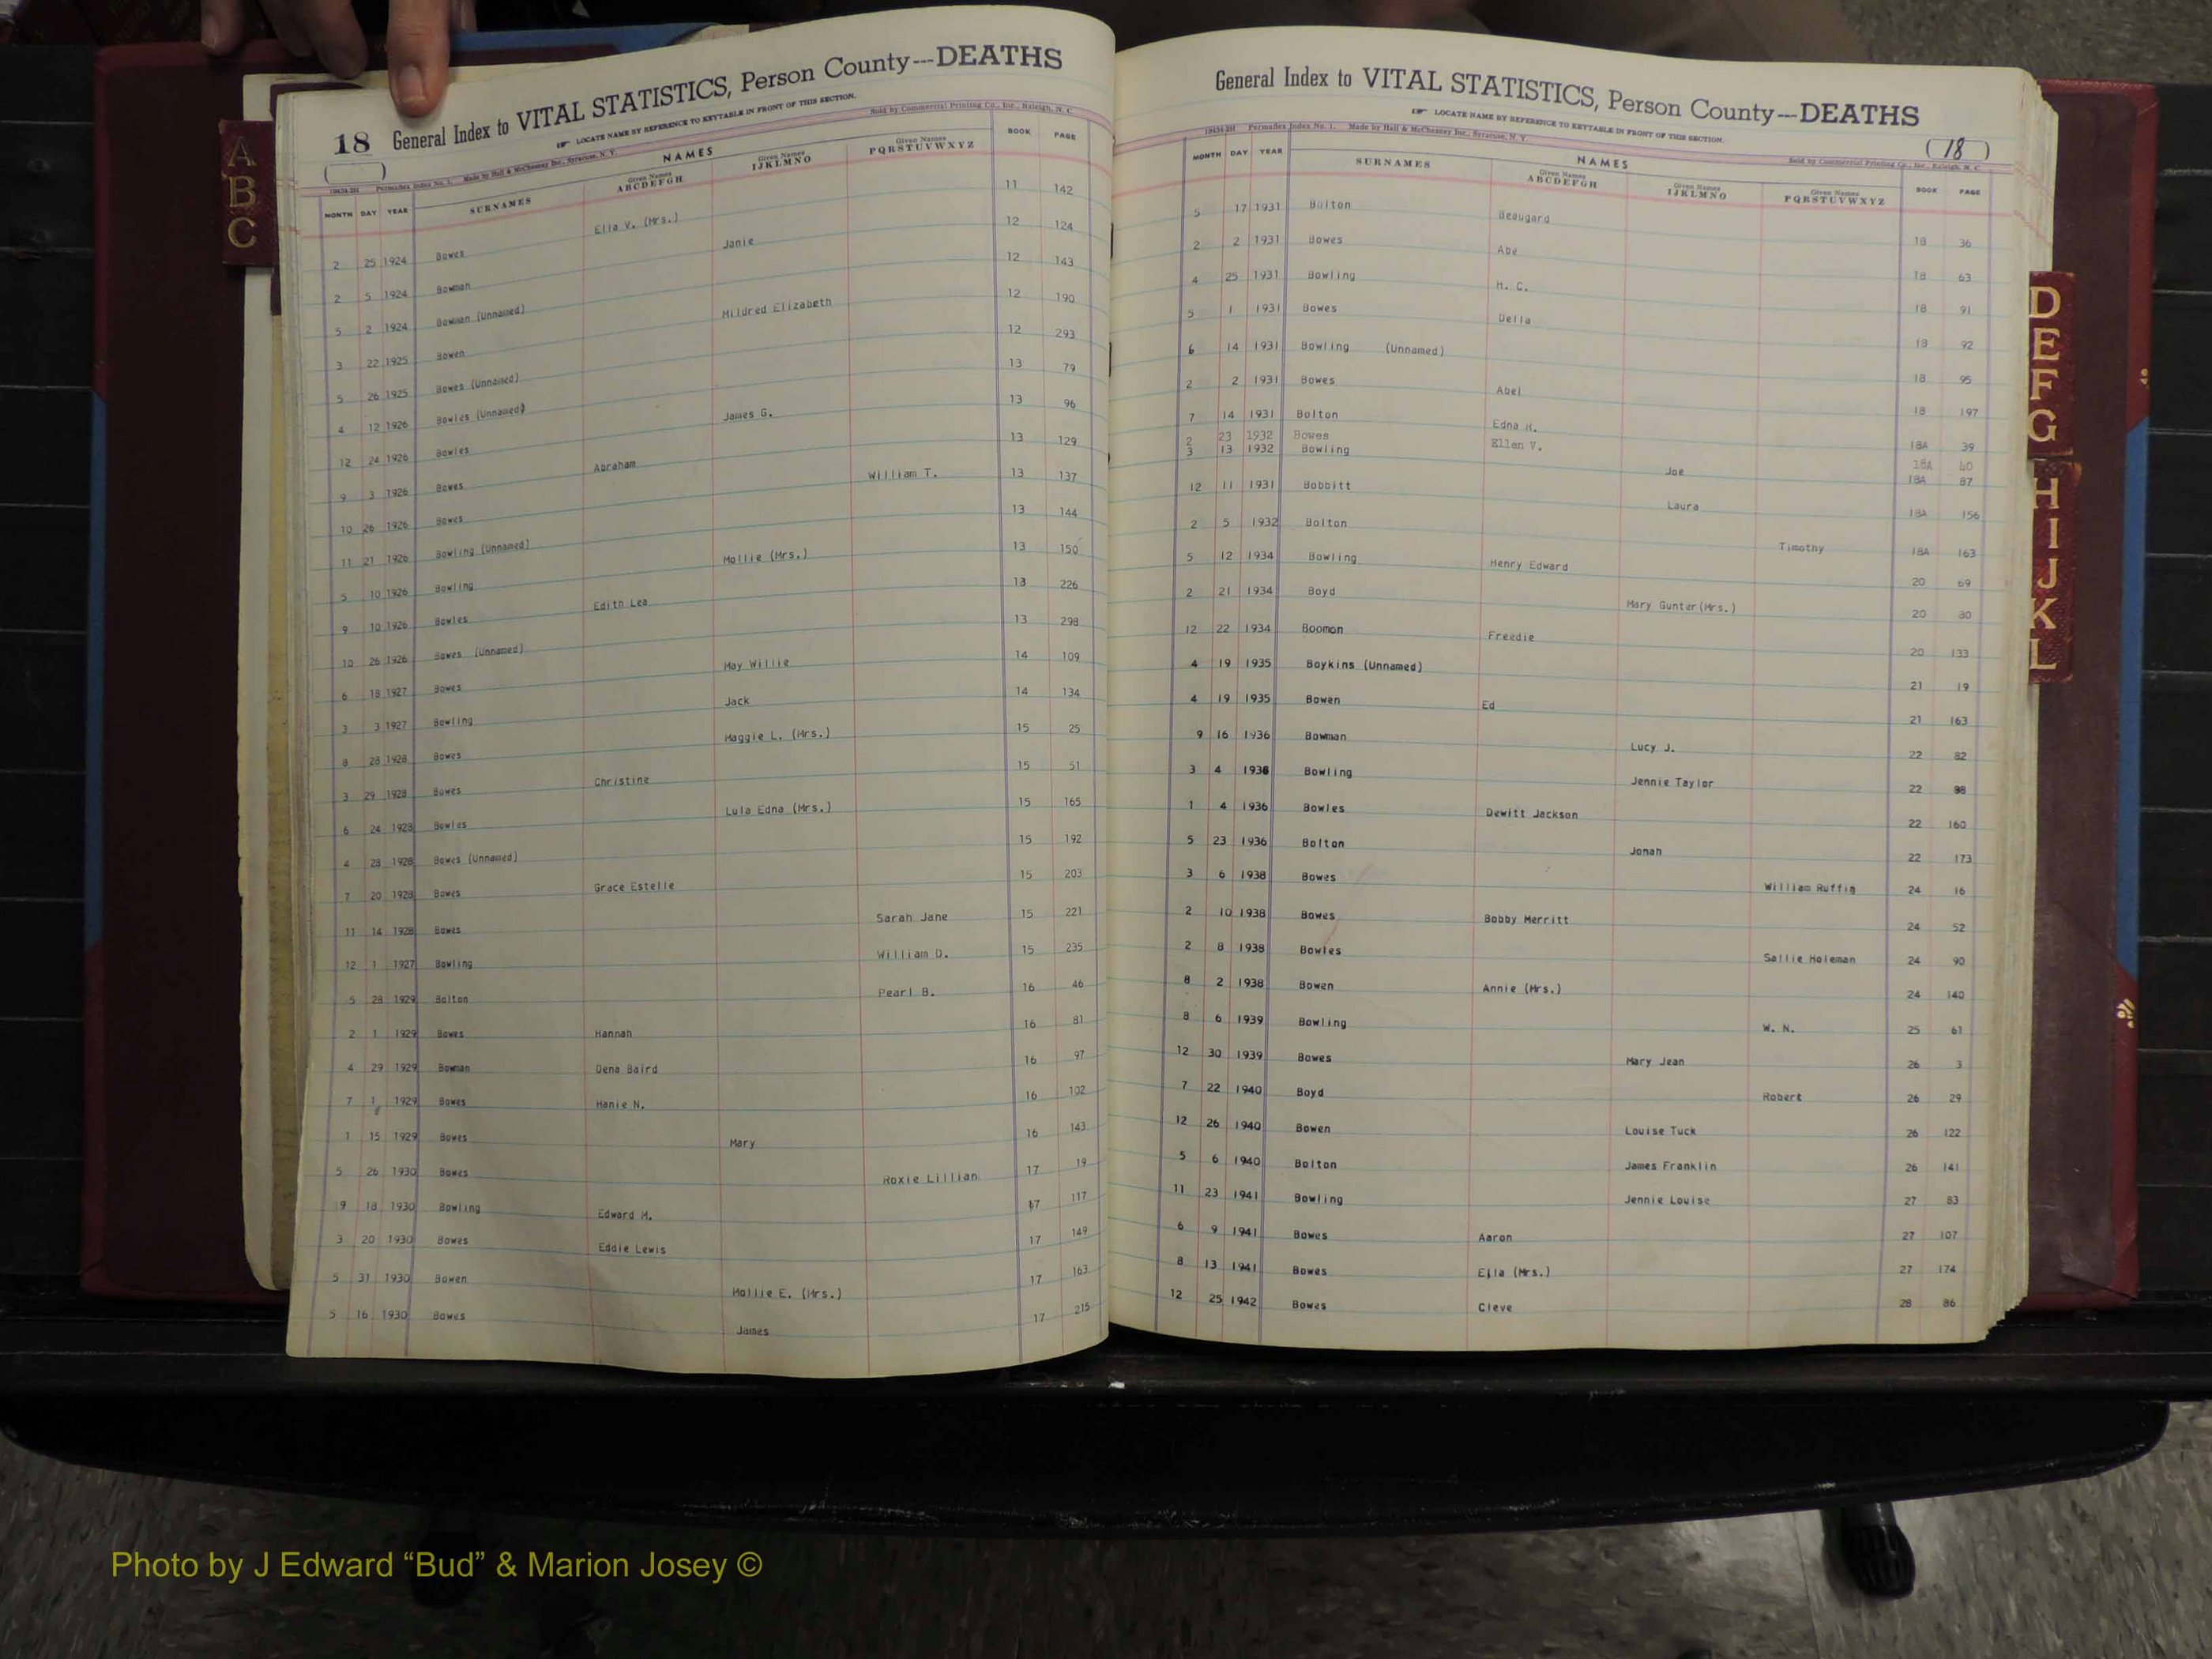 A
B
C
18 General Index to VITAL STATISTICS, Person County---DEATHS
LOCATE NAME BY REFERENCE TO KEYTABLE IN FRONT OF THIS SECTION.
Made by Hall & McChesney Inc., Syracuse, N. Y. Sold by Commercial Printing Co., Inc., Raleigh, N. C.
MONTH DAY YEAR SURNAMES NAMES Given Names ABCDEFGH Given Names IJKLMNO Given Names PQRSTUVWXYZ BOOK PAGE
2 25 1924 Bowes Ella V. (Mrs.) 11 142
2 5 1924 Bowman Janie 12 124
5 2 1924 Bowman (Unnamed) 12 143
3 22 1925 Bowen Mildred Elizabeth 12 190
5 26 1925 Bowes (Unnamed) 12 293
4 12 1926 Bowles (Unnamed) 13 79
12 24 1926 Bowles James G. 13 96
9 3 1926 Bowes Abraham 13 129
10 26 1926 Bowes William T. 13 137
11 21 1926 Bowling (Unnamed) 13 144
5 10 1926 Bowling Mollie (Mrs.) 13 150
9 10 1926 Bowles Edith Lea 13 226
10 26 1926 Bowes (Unnamed) 13 298
6 18 1927 Bowes May Willie 14 109
3 3 1927 Bowling Jack 14 134
8 28 1928 Bowes Maggie L. (Mrs.) 15 25
3 29 1928 Bowes Christine 15 51
6 24 1928 Bowles Lula Edna (Mrs.) 15 165
4 28 1928 Bowes (Unnamed) 15 192
7 20 1928 Bowes Grace Estelle 15 203
11 14 1928 Bowes Sarah Jane 15 221
12 1 1927 Bowling William D. 15 235
5 28 1929 Bolton Pearl B. 16 46
2 1 1929 Bowes Hannah 16 81
4 29 1929 Bowman Dena Baird 16 97
7 1 1929 Bowes Hanie N. 16 102
1 15 1929 Bowes Mary 16 143
5 26 1930 Bowes Roxie Lillian 17 19
9 18 1930 Bowling Edward H. 17 117
3 20 1930 Bowes Eddie Lewis 17 149
5 31 1930 Bowen Mollie E. (Mrs.) 17 163
5 16 1930 Bowes James 17 215
General Index to VITAL STATISTICS, Person County---DEATHS
LOCATE NAME BY REFERENCE TO KEYTABLE IN FRONT OF THIS SECTION.
(18)
Permadex Index No. 1. Made by Hall & McChesney Inc., Syracuse, N. Y. Sold by Commercial Printing Co., Inc., Raleigh, N. C.
MONTH DAY YEAR SURNAMES NAMES Given Names ABCDEFGH Given Names IJKLMNO Given Names PQRSTUVWXYZ BOOK PAGE
5 17 1931 Bolton Beaugard 18 36
2 2 1931 Bowes Abe 18 63
4 25 1931 Bowling H. C. 18 91
5 1 1931 Bowes Della 18 92
6 14 1931 Bowling (Unnamed) 18 95
2 2 1931 Bowes Abel 18 197
7 14 1931 Bolton Edna H. 18A 39
2 23 1932 Bowes Ellen V. 18A 40
3 13 1932 Bowling Joe 18A 87
12 11 1931 Bobbitt Laura 18A 156
2 5 1932 Bolton Timothy 18A 163
5 12 1934 Bowling Henry Edward 20 69
2 21 1934 Boyd Mary Gunter(Mrs.) 20 80
12 22 1934 Booman Freedie 20 133
4 19 1935 Boykins (Unnamed) 21 19
4 19 1935 Bowen Ed 21 163
9 16 1936 Bowman Lucy J. 22 82
3 4 1936 Bowling Jennie Taylor 22 98
1 4 1936 Bowles Dewitt Jackson 22 160
5 23 1936 Bolton Jonah 22 173
3 6 1938 Bowes William Ruffin 24 16
2 10 1938 Bowes Bobby Merritt 24 52
2 8 1938 Bowles Sallie Holeman 24 90
8 2 1938 Bowen Annie (Mrs.) 24 140
8 6 1939 Bowling W. N. 25 61
12 30 1939 Bowes Mary Jean 26 3
7 22 1940 Boyd Robert 26 29
12 26 1940 Bowen Louise Tuck 26 122
5 6 1940 Bolton James Franklin 26 141
11 23 1941 Bowling Jennie Louise 27 83
6 9 1941 Bowes Aaron 27 107
8 13 1941 Bowes Ella (Mrs.) 27 174
12 25 1942 Bowes Cleve 28 86
D
E
F
G
H
I
J
K
L
Photo by J Edward “Bud” & Marion Josey ©